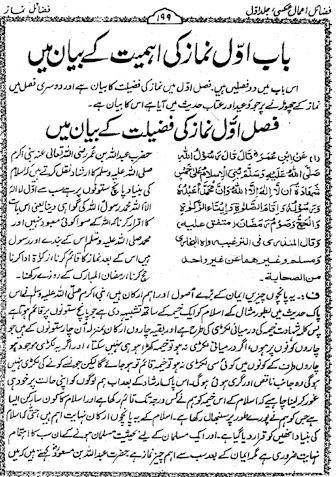 فضائل اعمال عکسی، جلد اوّل
۱۹۹
فضائل نماز
باب اوّل نماز کی اہمیت کے بیان میں
اس باب میں دو فصلیں ہیں۔ فصل اوّل میں نماز کی فضیلت کا بیان ہے اور دوسری فصل میں
نماز کے چھوڑنے پر جو وعید اور عتاب حدیث میں آیا ہے اس کا بیان ہے۔
فصل اوّل نماز کی فضیلت کے بیان میں
(۱) عَنِ ابْنِ عُمَرَ قَالَ قَالَ رَسُوْلُ اللهِ
صَلَّى اللهُ عَلَيْهِ وَسَلَّمَ بُنِيَ الْاِسْلَامُ عَلٰى خَمْسٍ
شَهَادَةِ اَنْ لَّا اِلٰهَ اِلَّا اللهُ وَاَنَّ مُحَمَّدًا عَبْدُهُ
وَرَسُوْلُهُ وَاِقَامِ الصَّلٰوةِ وَاِيْتَاءِ الزَّكٰوةِ
وَالْحَجِّ وَصَوْمِ رَمَضَانَ (متفق عليه)
وقال المنذرى فى الترغيب رواه البخارى
ومسلم وغيرهما عن غير واحد
من الصحابة۔
حضرت عبداللہ بن عمر رضی اللہ تعالیٰ عنہ نبی اکرم
صلی اللہ علیہ وسلم کا ارشاد نقل کرتے ہیں کہ اسلام
کی بنیاد پانچ ستونوں پر ہے سب سے اوّل لا الٰہ
الا اللہ محمد رسول اللہ کی گواہی دینا یعنی اس بات
کا اقرار کرنا کہ اللہ کے سوا کوئی معبود نہیں اور
محمد صلی اللہ علیہ وسلم اس کے بندے اور رسول
ہیں اس کے بعد نماز کا قائم کرنا، زکوٰۃ ادا کرنا
حج کرنا، رمضان المبارک کے روزے رکھنا۔
ف:۔ یہ پانچوں چیزیں ایمان کے بڑے اصول اور اہم ارکان ہیں، نبی اکرم صلی اللہ علیہ وسلم نے اس
پاک حدیث میں بطور مثال کے اسلام کو ایک خیمہ کے ساتھ تشبیہ دی ہے جو پانچ ستونوں پر قائم ہوتا ہے
پس کلمہ شہادت خیمہ کی درمیانی لکڑی کی طرح ہے اور بقیہ چاروں ارکان بمنزلہ ان چار ستونوں کے ہیں جو
چاروں کونوں پر ہوں، اگر درمیانی لکڑی نہ ہو تو خیمہ کھڑا ہو ہی نہیں سکتا اور اگر یہ لکڑی موجود ہو اور
چاروں طرف کے کونوں میں کوئی سی لکڑی نہ ہو تو خیمہ قائم تو ہو جائے گا لیکن جونسے کونے کی لکڑی نہیں
ہوگی وہ جانب ناقص اور گری ہوئی ہوگی۔ اس پاک ارشاد کے بعد اب ہم لوگوں کو اپنی حالت پر خود ہی
غور کر لینا چاہئے کہ اسلام کے اس خیمہ کو ہم نے کس درجہ تک قائم کر رکھا ہے اور اسلام کا کون سا رکن ایسا
ہے جس کو ہم نے پورے طور پر سنبھال رکھا ہے۔ اسلام کے یہ پانچوں ارکان نہایت اہم ہیں حتیٰ کہ اسلام
کی بنیاد انہیں کو قرار دیا گیا ہے۔ اور ایک مسلمان کے لئے بحیثیت مسلمان ہونے کے ان سب کا اہتمام
نہایت ضروری ہے مگر ایمان کے بعد سب سے اہم چیز نماز ہے حضرت عبداللہ بن مسعودؓ کہتے ہیں کہ میں